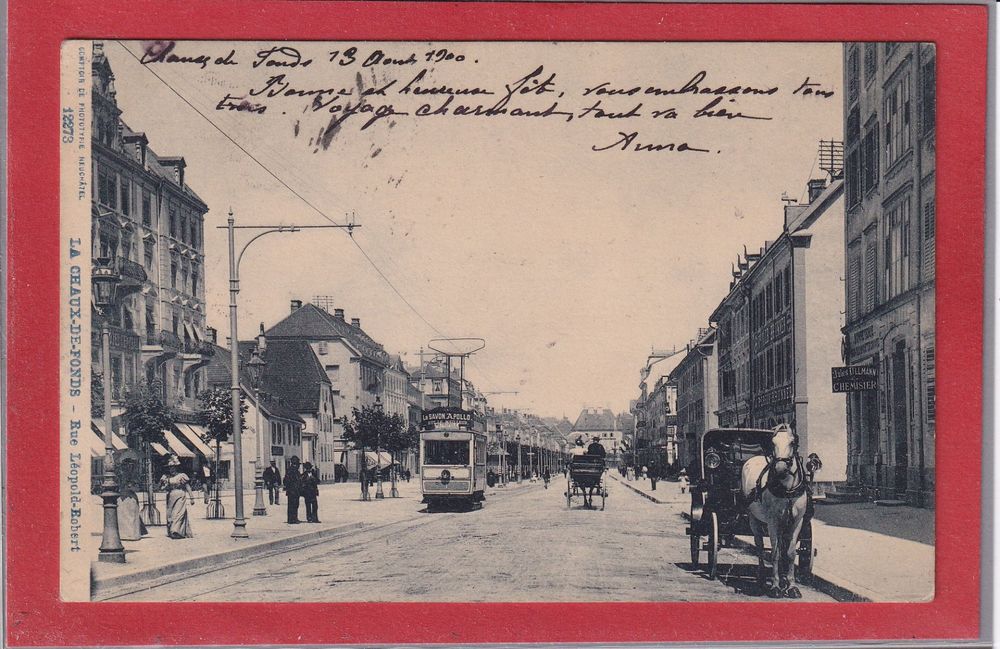 Chaux-de-Fonds 13 Aout 1900.
Bonne et heureuse fête, vous embrassons tous
trois. Voyage charmant, tout va bien
Anna.
COMPTOIR DE PHOTOTYPIE NEUCHÂTEL
12273
LA CHAUX-DE-FONDS - Rue Léopold-Robert
LE SAVON APOLLO
Jules ULLMANN
CHEMISIER